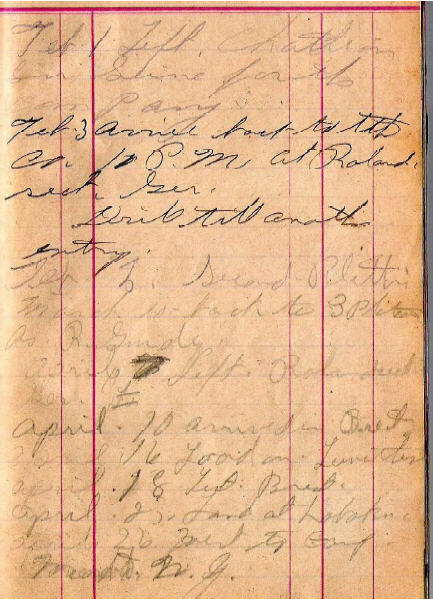 Feb 1 Left. Chatllion
on Seine for th
Company
Feb. 3 Arrive back to 7th
Co. 10 P.M. at Roland.
seck Ger.
Drill till anoth
entry.
Feb Second Platton
March 10 back to 3 Platton
as R. Guide.
April Left Rolandseck
Ger.
April. 10 arrived in Brest
April 16 Load on
april. 18 Left Brest.
April. 27. Land at Hoboken.
april 28 went to Camp.
Merritt. N. J.